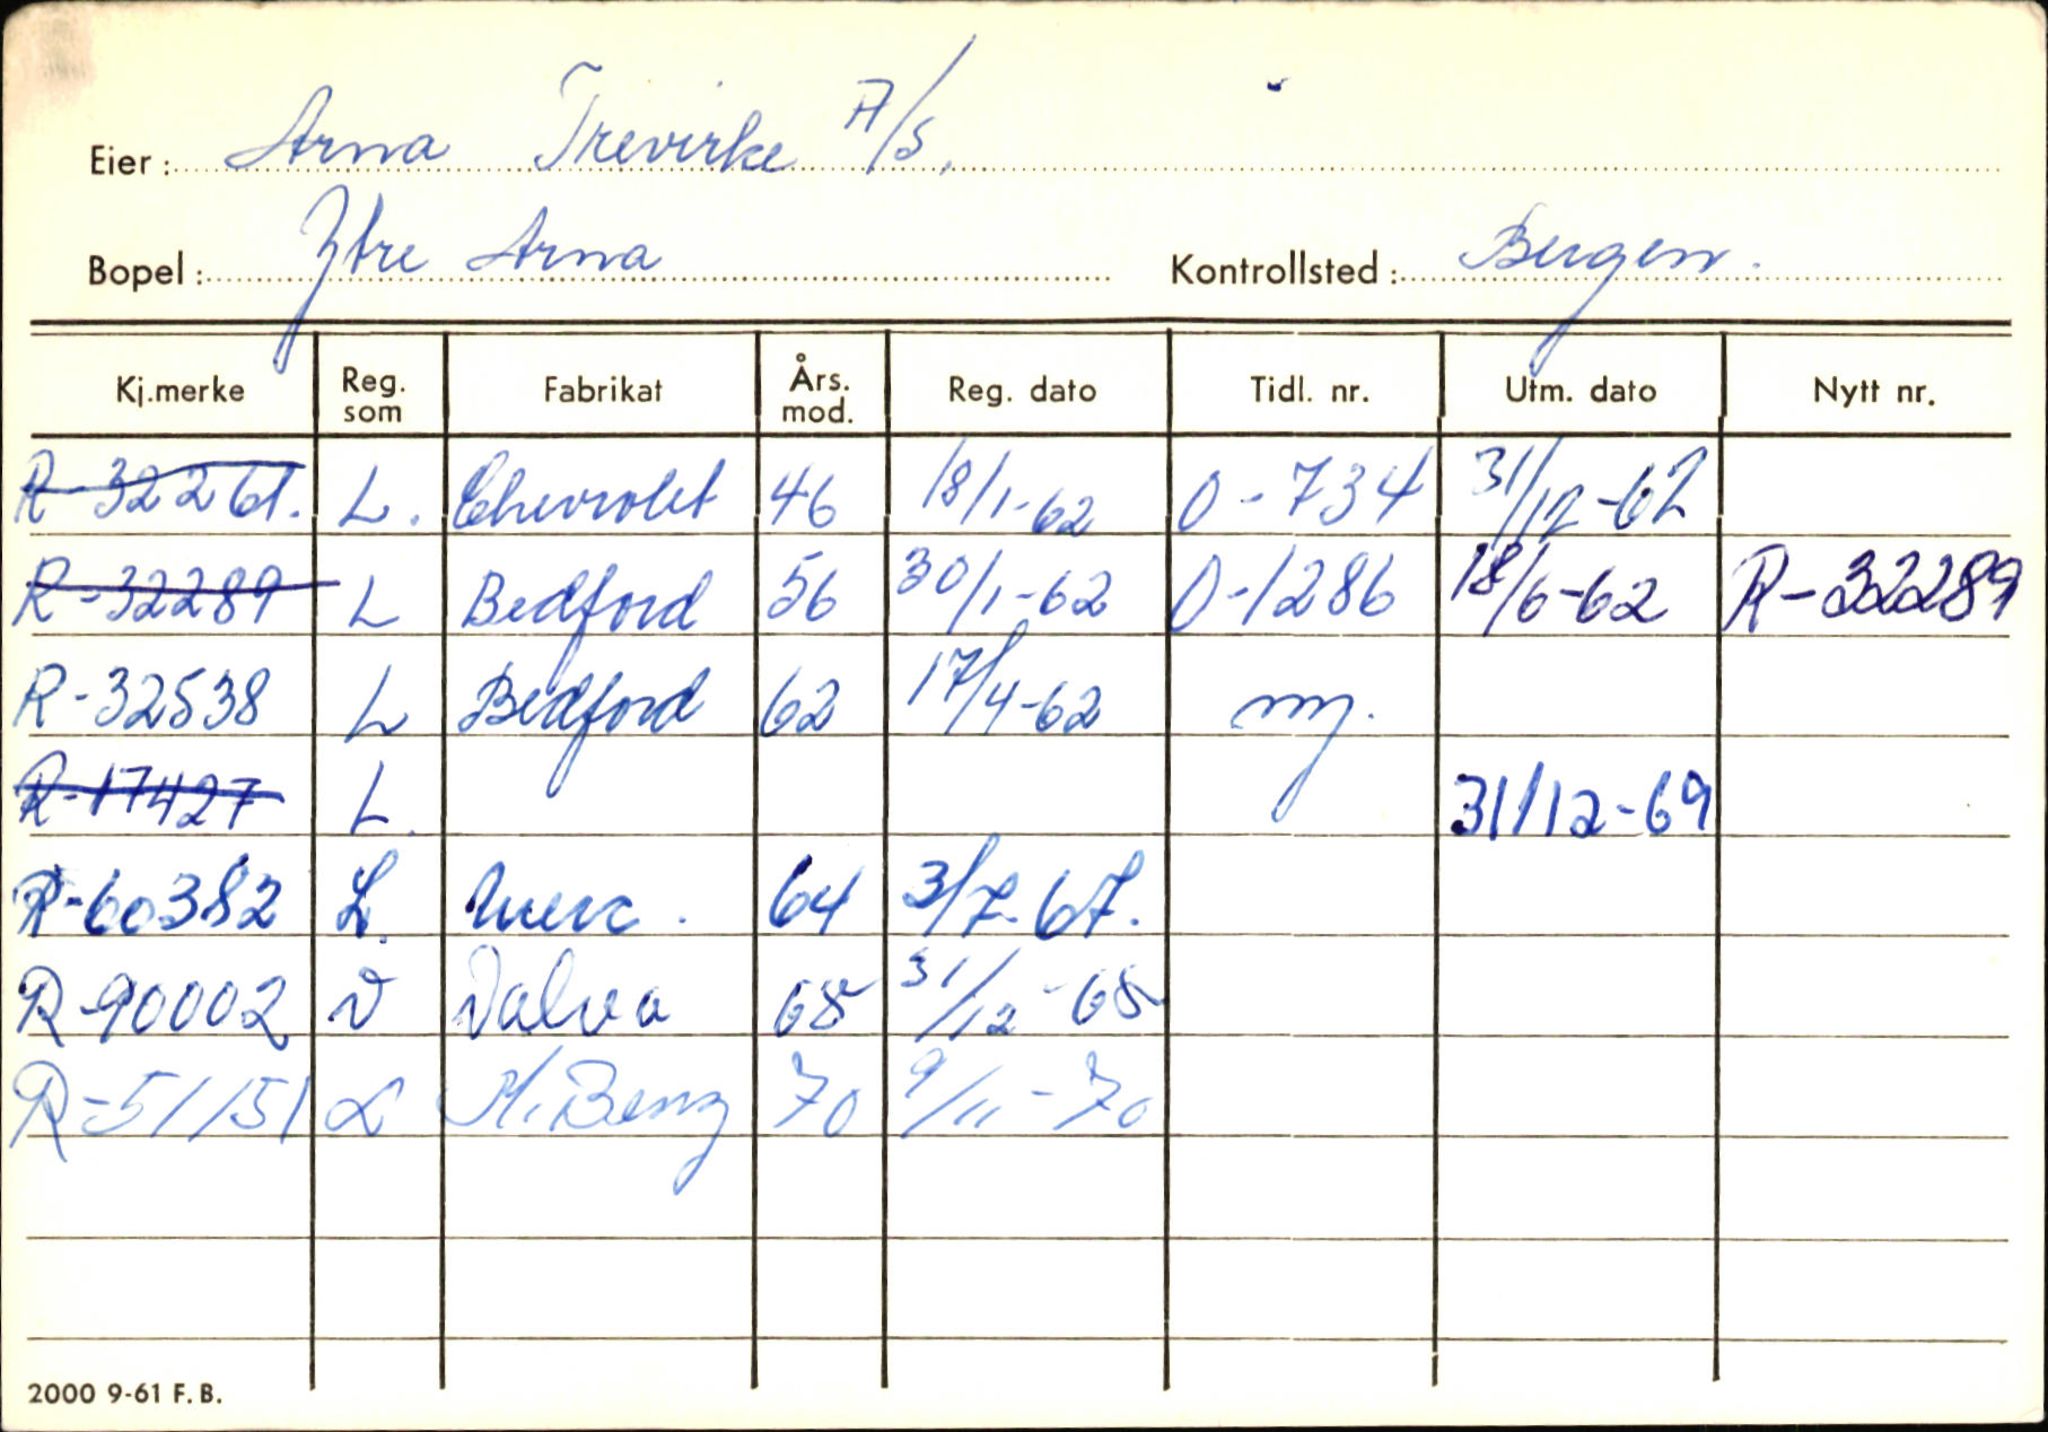 Eier: Arna Trevirke A/S.
Bopel: Ytre Arna Kontrollsted: Bergen.
Kj.merke Reg. som Fabrikat Års. mod. Reg. dato Tidl. nr. Utm. dato Nytt nr.
R-32261. L. Chevrolet 46 18/1-62 O-734 31/12-62
R-32289 L Bedford 56 30/1-62 O-1286 18/6-62 R-32289
R-32538 L Bedford 62 17/4-62 ny.
R-17427 L. 31/12-69
R-60382 L. Merc. 64 3/7-67.
R-90002 V Volvo 68 31/12-68
R-51151 L M. Benz 70 9/11-70
2000 9-61 F.B.